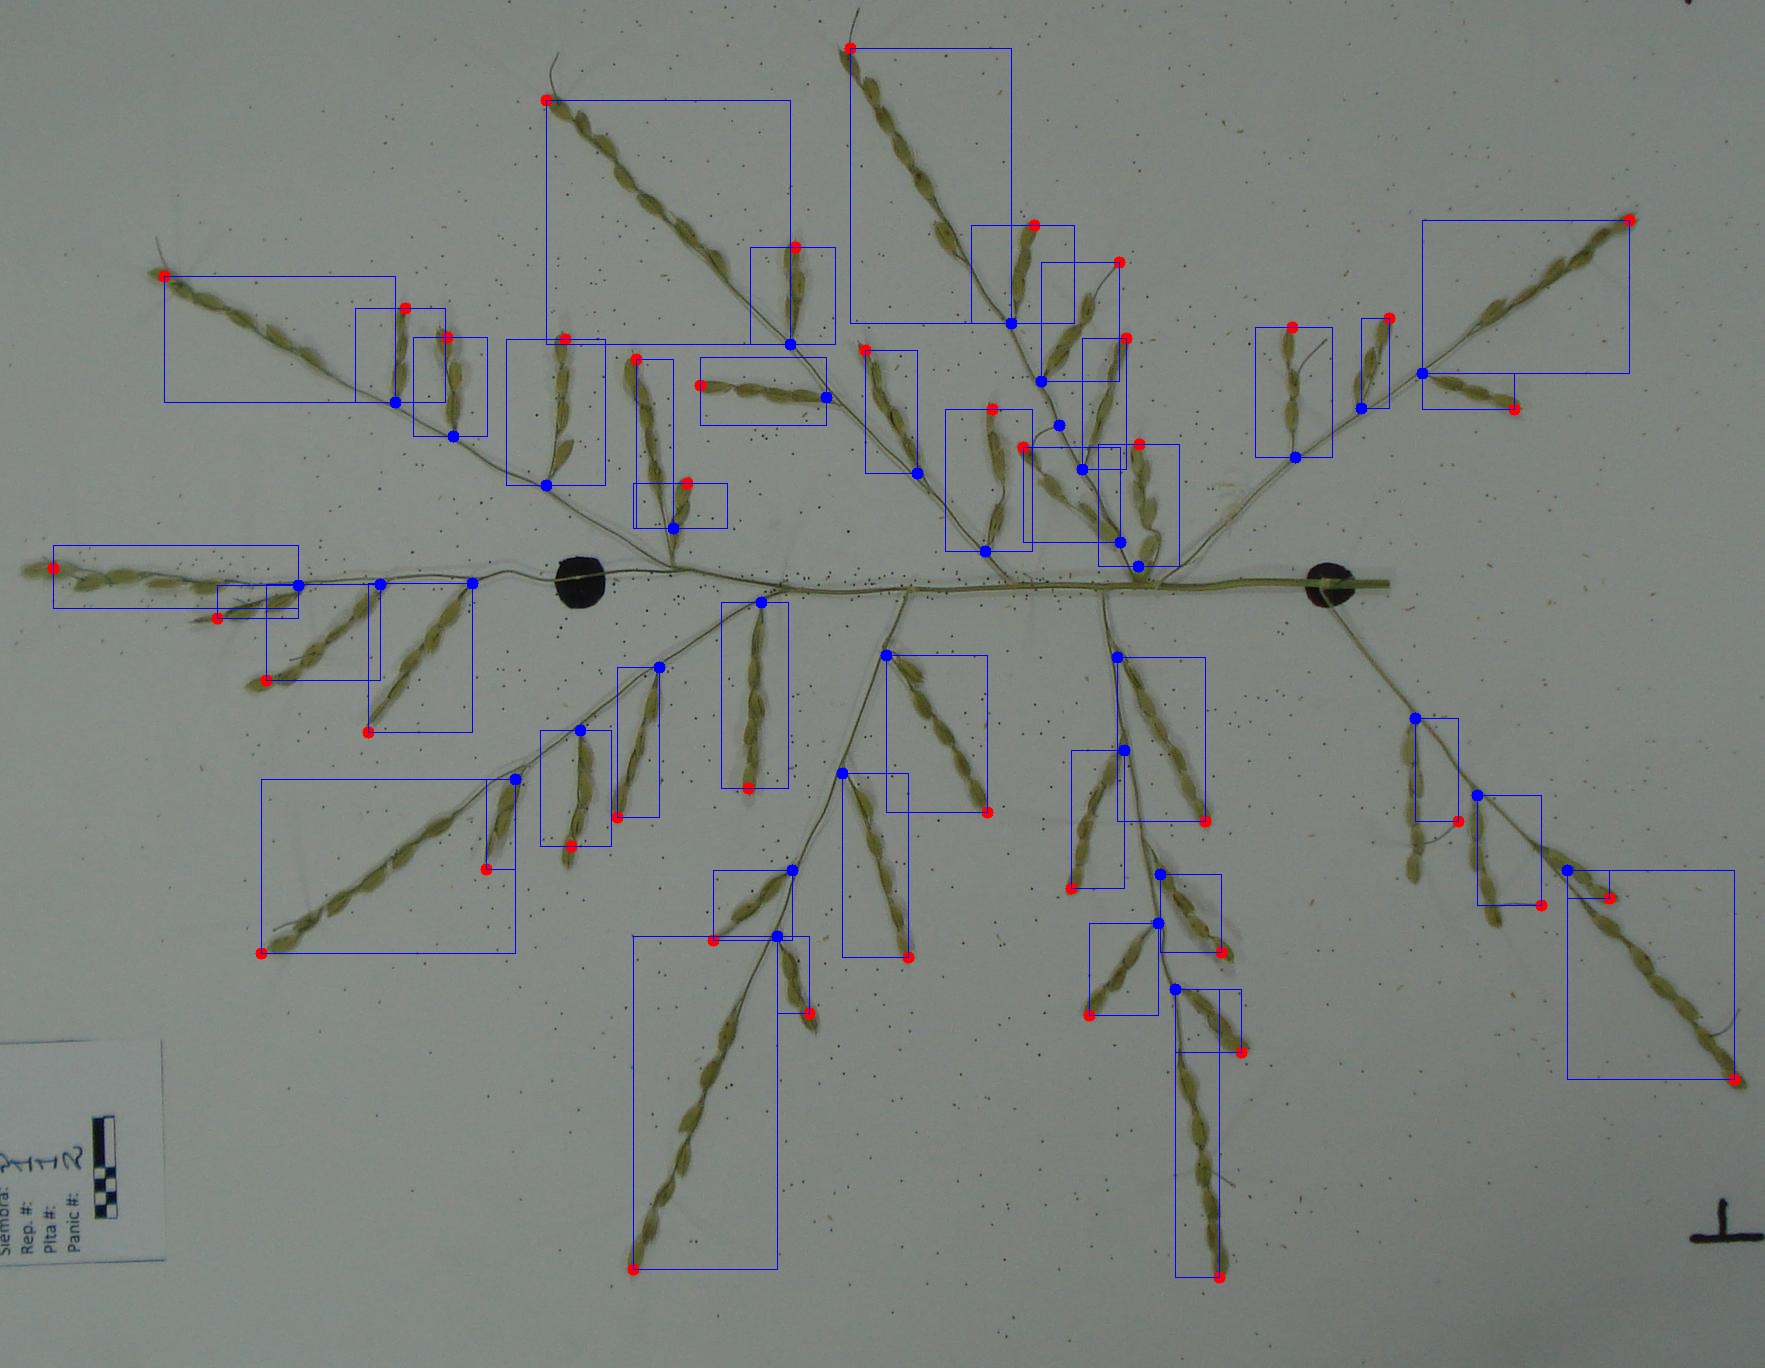 Siembra: 
Rep. #: 1
Plta #: 1
Panic #: 2